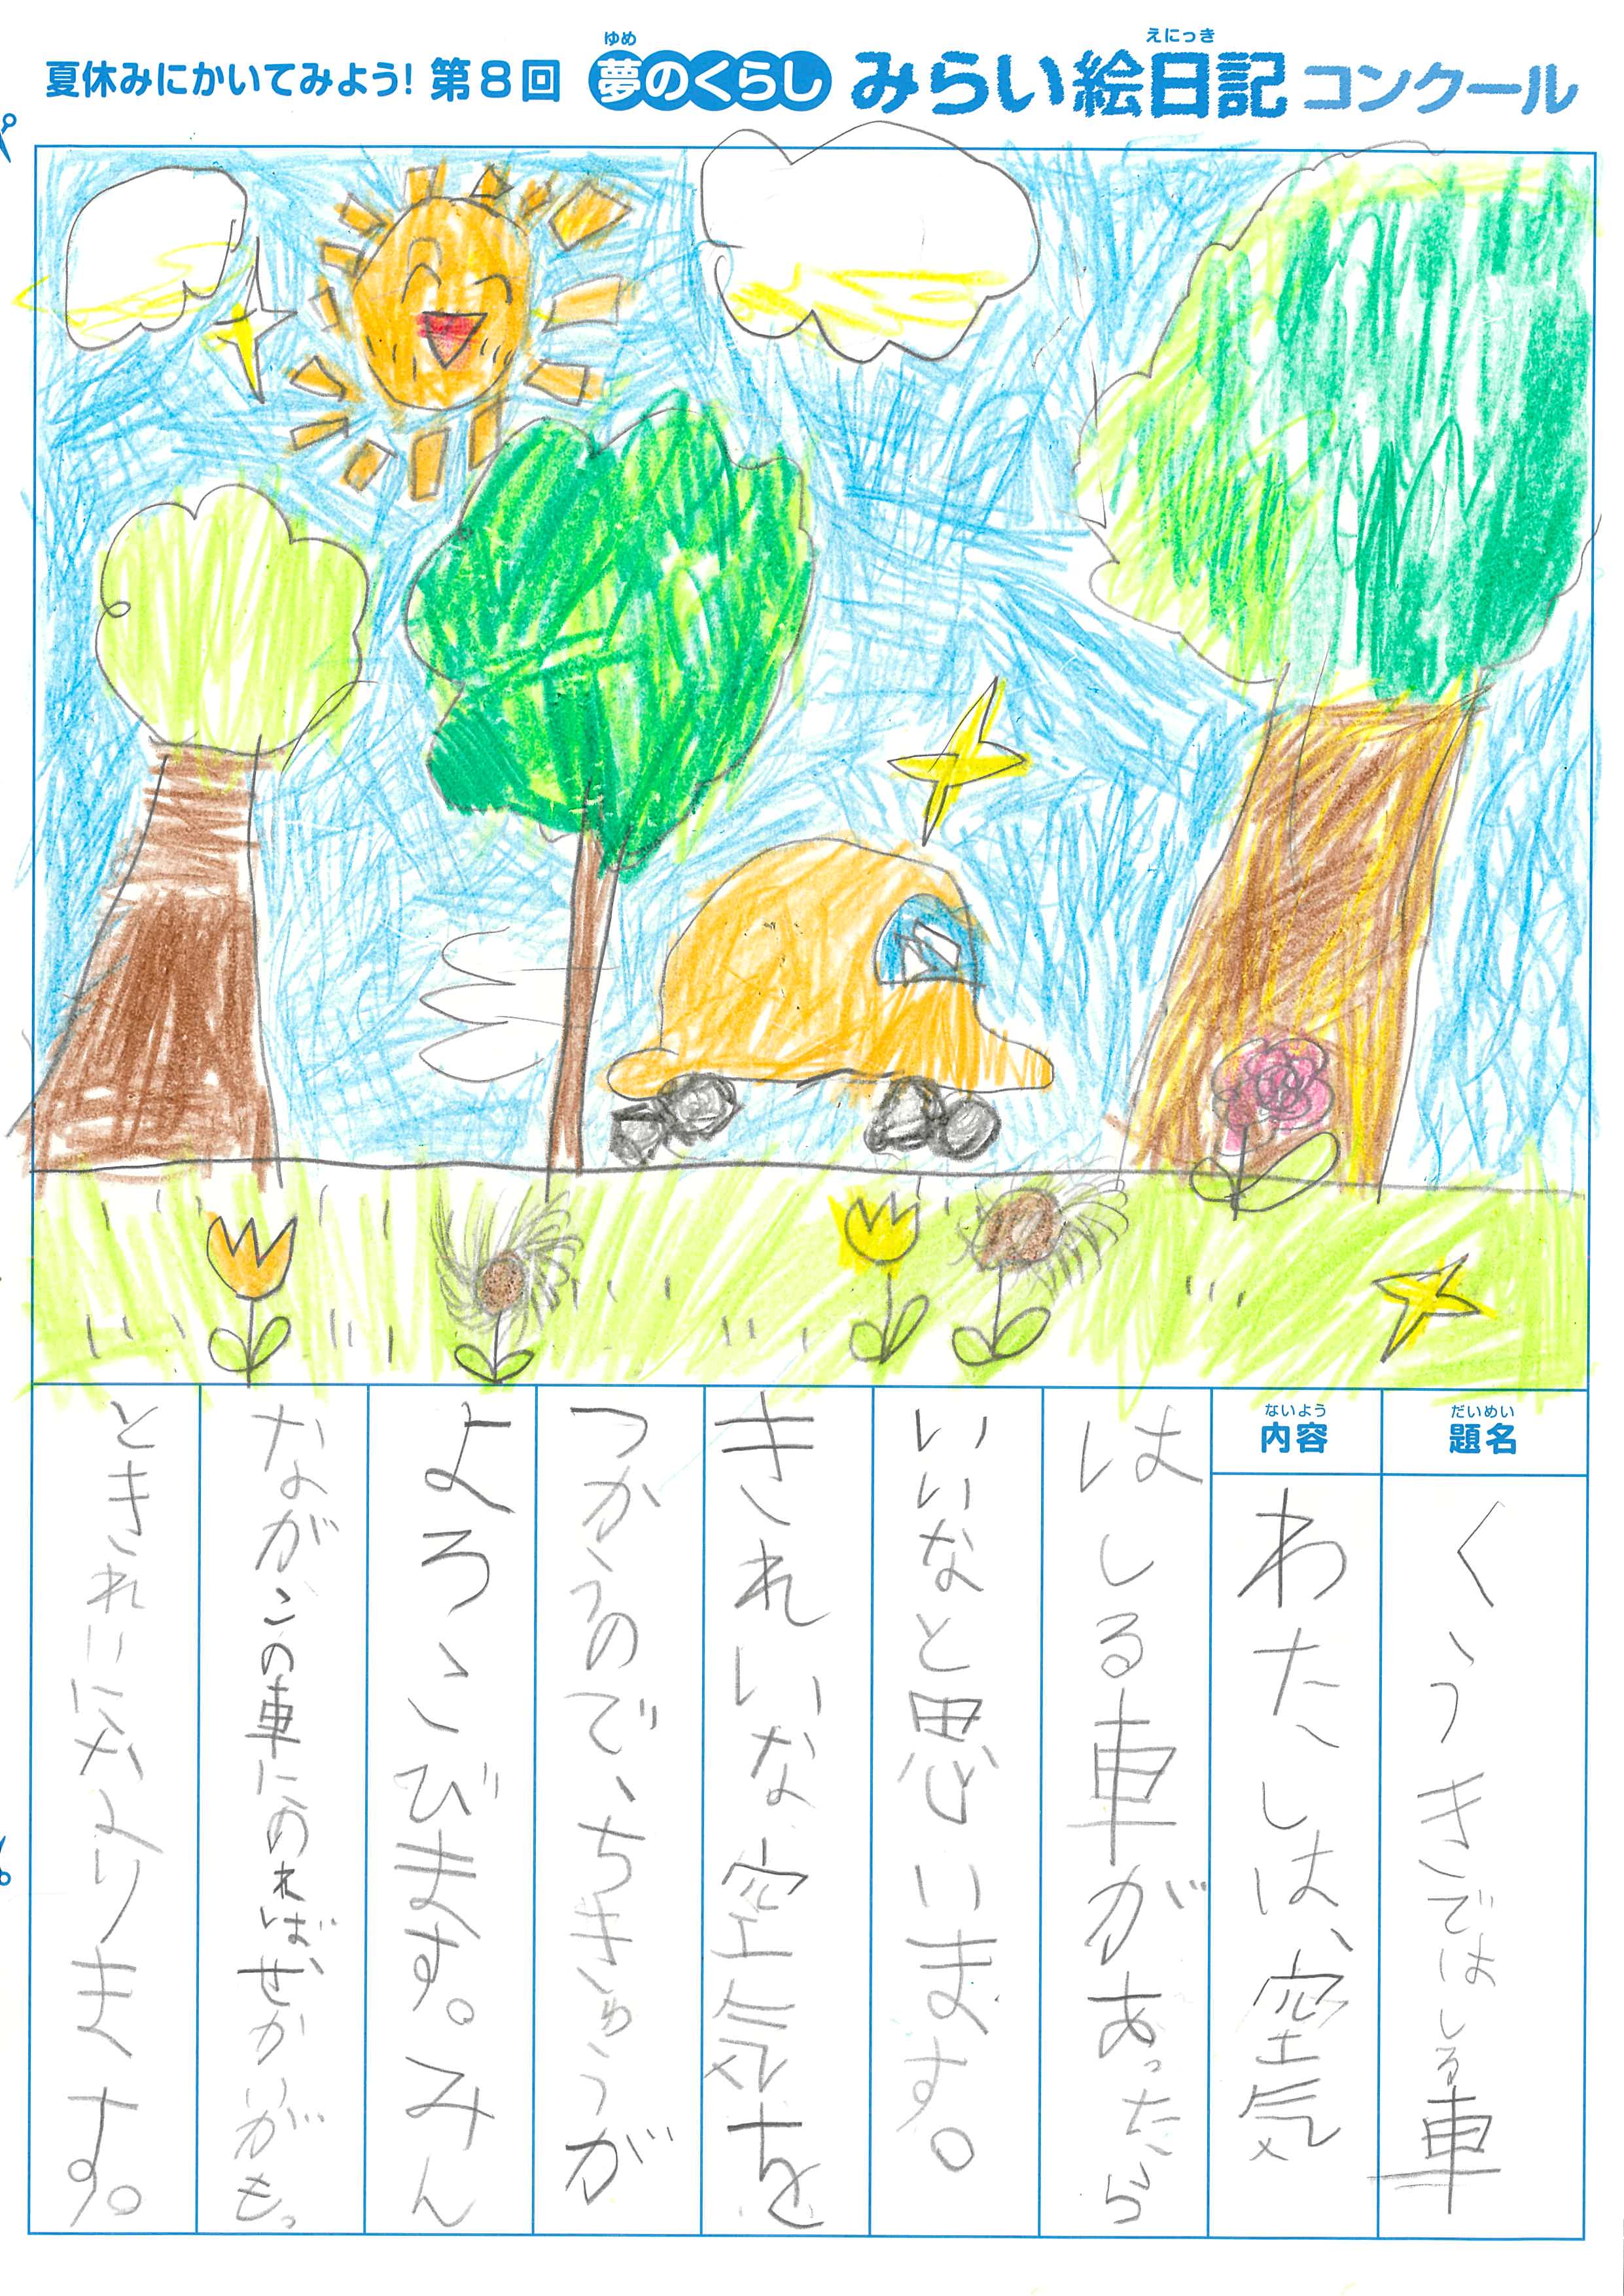 夏休みにかいてみよう! 第8回 夢のくらし みらい絵日記 コンクール
ゆめ
えにっき
だいめい
題名
くうきではしる車
ないよう
内容
わたしは、空気
はしる車があったら
いいなと思います。
きれいな空気を
つかうので、ちきゅうが
よろこびます。みん
ながこの車にのれば、せかいがもっ
ときれいになります。